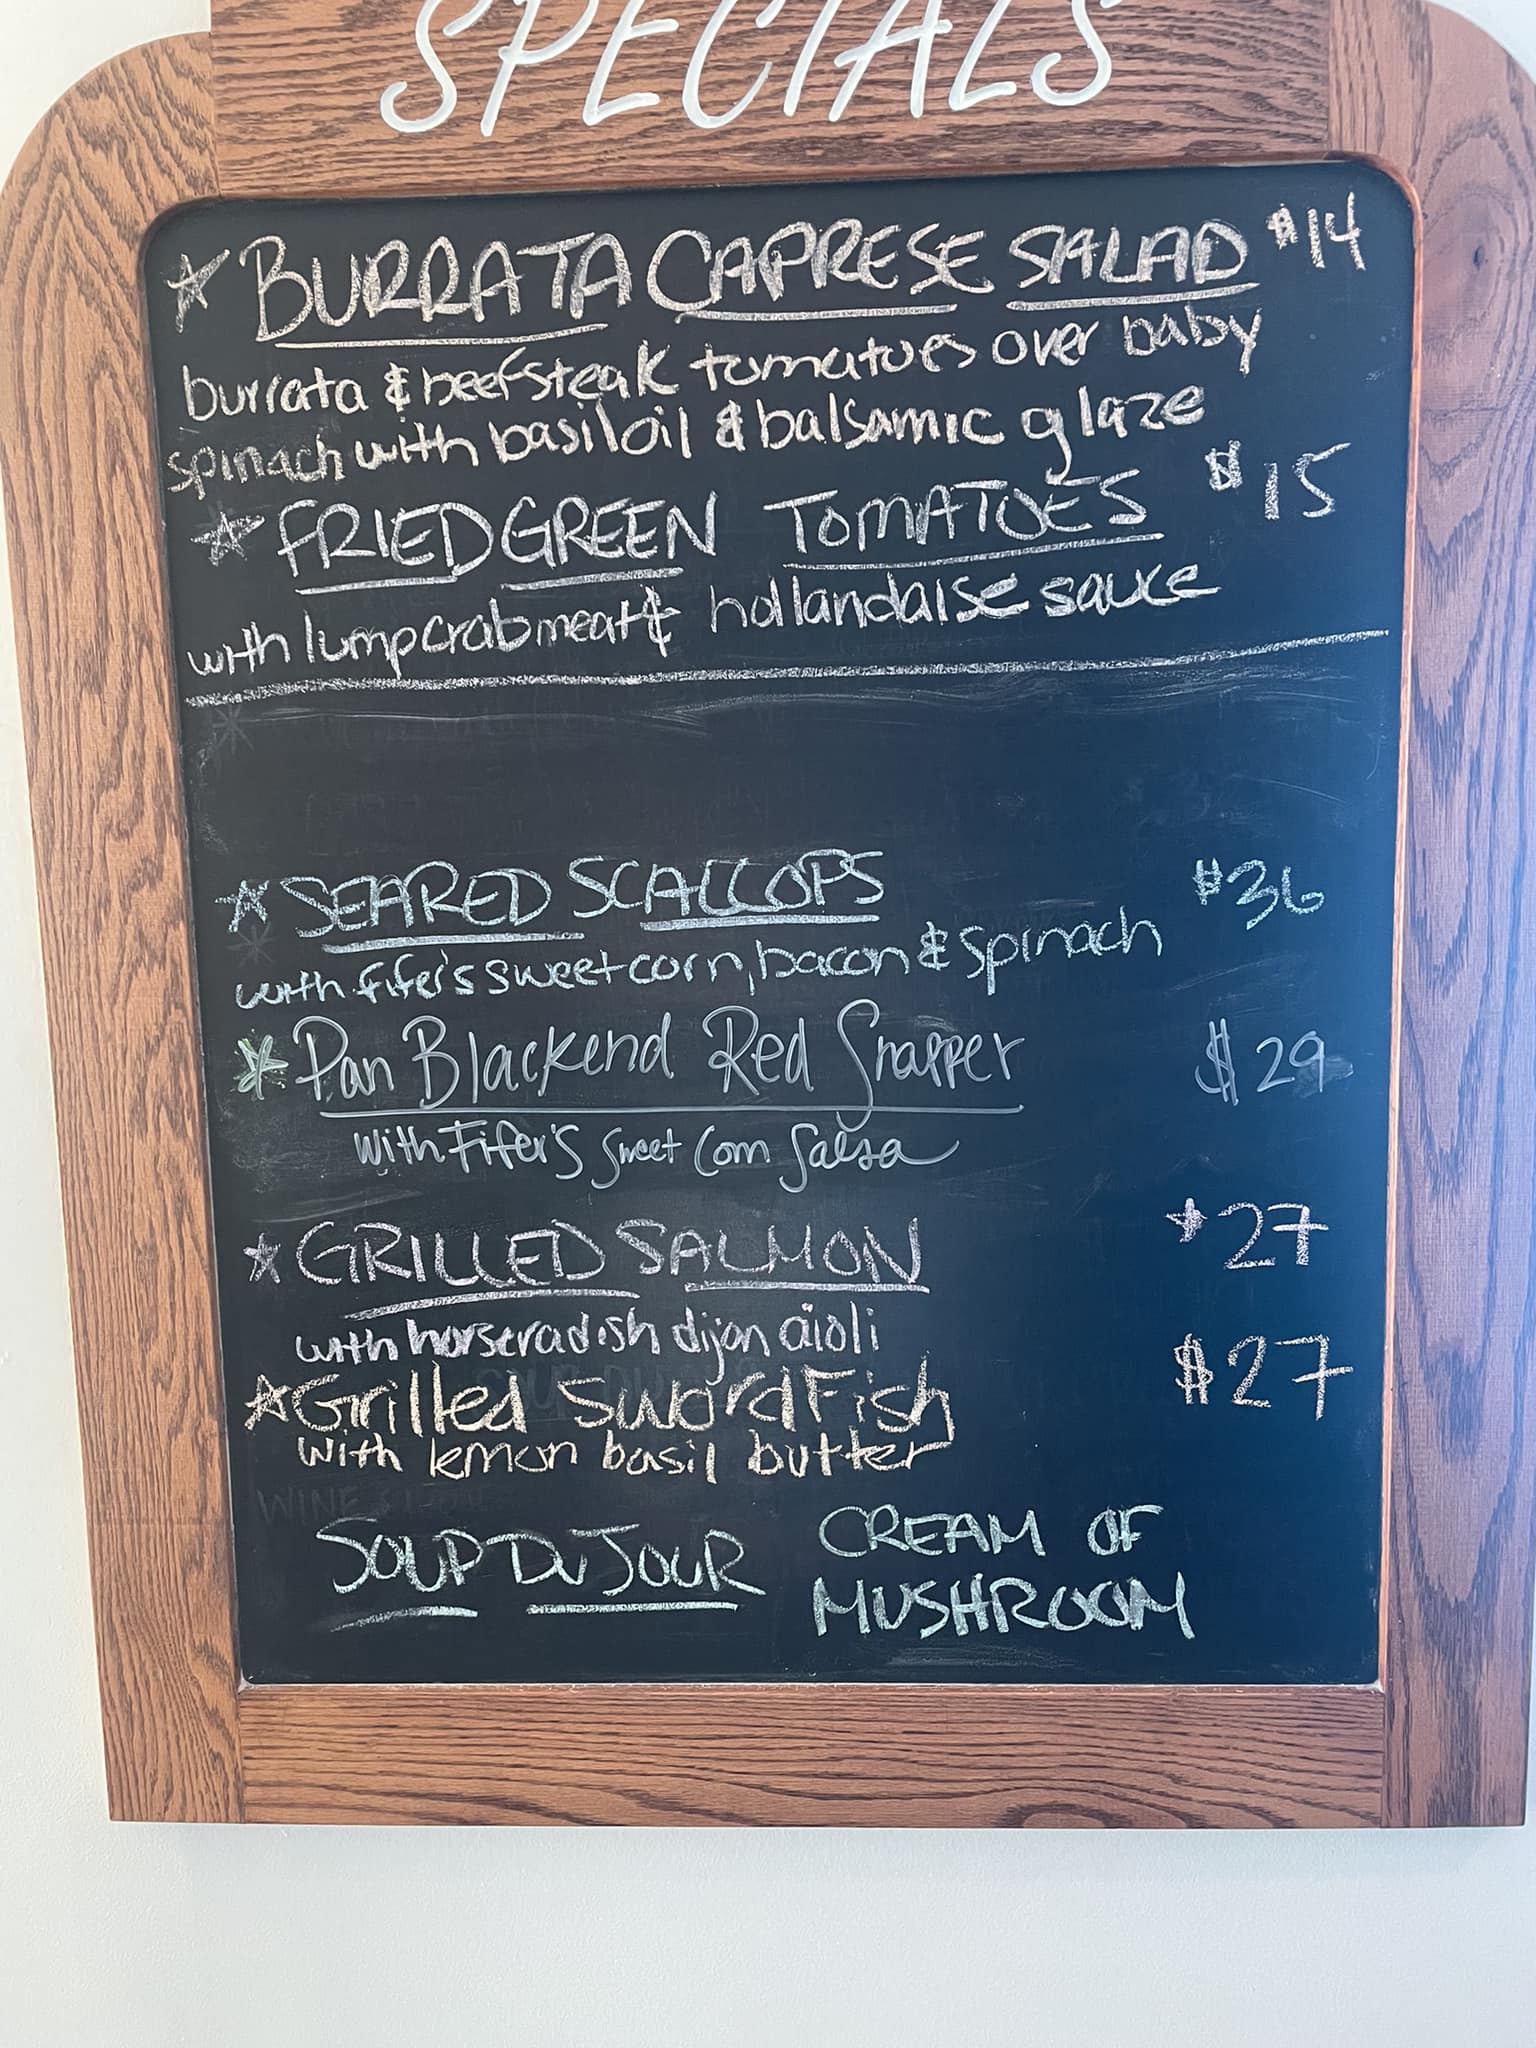 SPECIALS
BURRATA CAPRESE SALAD $14
burrata & beefsteak tomatoes over baby
spinach with basil oil & balsamic glaze
FRIED GREEN TOMATOES $15
with lump crabmeat & hollandaise sauce
SEARED SCALLOPS $36
with fifer's sweet corn, bacon & spinach
Pan Blackend Red Snapper $29
with Fifer's Sweet Corn Salsa
GRILLED SALMON 27
with horseradish dijon aioli
Grilled SwordFish $27
with lemon basil butter
SOUP DU JOUR CREAM OF
MUSHROOM